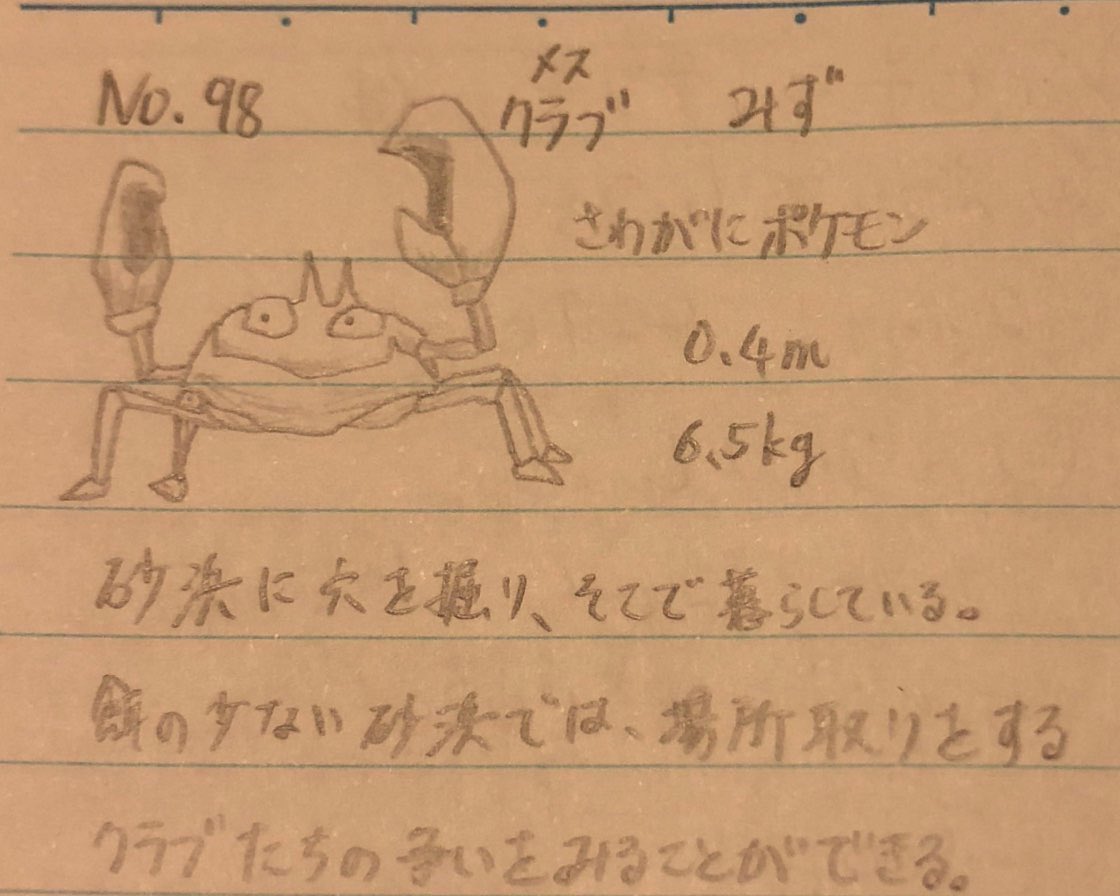 No. 98
メス
クラブ みず
さわがにポケモン
0.4m
6.5kg
砂浜に穴を掘り、そこで暮らしている。
餌の少ない砂浜では、場所取りをする
クラブたちの争いをみることができる。